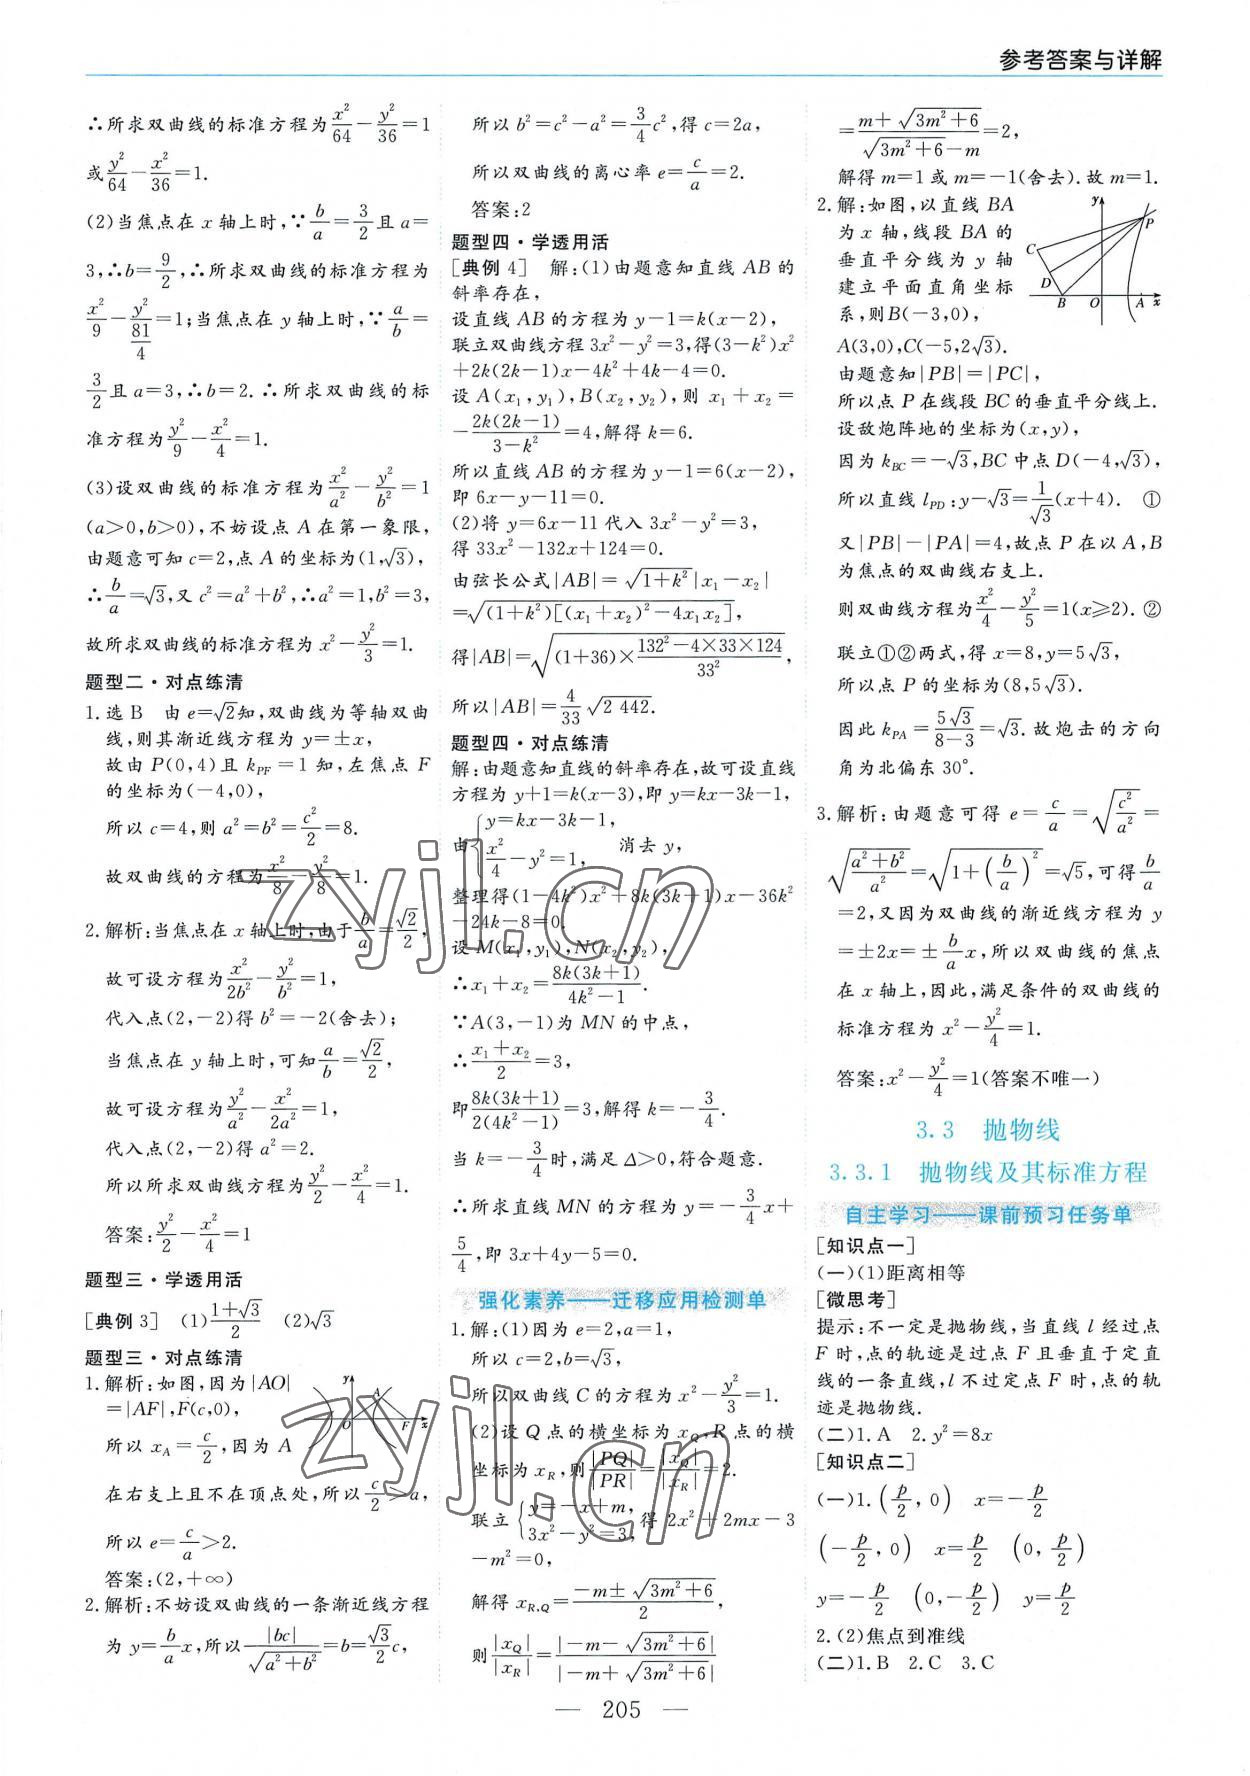 参考答案与详解
∴所求双曲线的标准方程为x²/64－y²/36＝1
或y²/64－x²/36＝1.
(2)当焦点在 x 轴上时,∵b/a＝3/2且 a＝
3,∴b＝9/2,∴所求双曲线的标准方程为
x²/9－y²/(81/4)＝1;当焦点在 y 轴上时,∵a/b＝
3/2且 a＝3,∴b＝2.∴所求双曲线的标
准方程为y²/9－x²/4＝1.
(3)设双曲线的标准方程为x²/a²－y²/b²＝1
(a＞0,b＞0),不妨设点 A 在第一象限,
由题意可知 c＝2,点 A 的坐标为(1,√3),
∴b/a＝√3,又 c²＝a²＋b²,∴a²＝1,b²＝3,
故所求双曲线的标准方程为 x²－y²/3＝1.
题型二·对点练清
1.选 B　由 e＝√2知,双曲线为等轴双曲
线,则其渐近线方程为 y＝±x,
故由 P(0,4)且 k_PF＝1 知,左焦点 F
的坐标为(－4,0),
所以 c＝4,则 a²＝b²＝c²/2＝8.
故双曲线的方程为x²/8－y²/8＝1.
2.解析:当焦点在 x 轴上时,由于b/a＝√2/2,
故可设方程为x²/2b²－y²/b²＝1,
代入点(2,－2)得 b²＝－2(舍去);
当焦点在 y 轴上时,可知a/b＝√2/2,
故可设方程为y²/a²－x²/2a²＝1,
代入点(2,－2)得 a²＝2.
所以所求双曲线方程为y²/2－x²/4＝1.
答案:y²/2－x²/4＝1
题型三·学透用活
[典例 3]　(1)(1＋√3)/2　(2)√3
题型三·对点练清
1.解析:如图,因为|AO|
＝|AF|,F(c,0),
所以 x_A＝c/2,因为 A
在右支上且不在顶点处,所以c/2＞a,
所以 e＝c/a＞2.
答案:(2,＋∞)
y A O F x
2.解析:不妨设双曲线的一条渐近线方程
为 y＝b/a x,所以|bc|/√(a²＋b²)＝b＝√3/2 c,
所以 b²＝c²－a²＝3/4 c²,得 c＝2a,
所以双曲线的离心率 e＝c/a＝2.
答案:2
题型四·学透用活
[典例 4]　解:(1)由题意知直线 AB 的
斜率存在,
设直线 AB 的方程为 y－1＝k(x－2),
联立双曲线方程 3x²－y²＝3,得(3－k²)x²
＋2k(2k－1)x－4k²＋4k－4＝0.
设 A(x₁,y₁),B(x₂,y₂),则 x₁＋x₂＝
－2k(2k－1)/(3－k²)＝4,解得 k＝6.
所以直线 AB 的方程为 y－1＝6(x－2),
即 6x－y－11＝0.
(2)将 y＝6x－11 代入 3x²－y²＝3,
得 33x²－132x＋124＝0.
由弦长公式|AB|＝√(1＋k²)|x₁－x₂|
＝√((1＋k²)[(x₁＋x₂)²－4x₁x₂]),
得|AB|＝√((1＋36)×(132²－4×33×124)/33²),
所以|AB|＝4/33 √2 442.
题型四·对点练清
解:由题意知直线的斜率存在,故可设直线
方程为 y＋1＝k(x－3),即 y＝kx－3k－1,
由{y＝kx－3k－1, x²/4－y²＝1, 消去 y,
整理得(1－4k²)x²＋8k(3k＋1)x－36k²
－24k－8＝0.
设 M(x₁,y₁),N(x₂,y₂),
∴x₁＋x₂＝8k(3k＋1)/(4k²－1).
∵A(3,－1)为 MN 的中点,
∴(x₁＋x₂)/2＝3,
即8k(3k＋1)/2(4k²－1)＝3,解得 k＝－3/4.
当 k＝－3/4时,满足 Δ＞0,符合题意.
∴所求直线 MN 的方程为 y＝－3/4 x＋
5/4,即 3x＋4y－5＝0.
强化素养——迁移应用检测单
1.解:(1)因为 e＝2,a＝1,
所以 c＝2,b＝√3,
所以双曲线 C 的方程为 x²－y²/3＝1.
(2)设 Q 点的横坐标为 x_Q,R 点的横
坐标为 x_R,则|PQ|/|PR|＝|x_Q|/|x_R|＝2.
联立{y＝－x＋m, 3x²－y²＝3, 得 2x²＋2mx－3
－m²＝0,
解得 x_R,Q＝(－m±√(3m²＋6))/2,
则|x_Q|/|x_R|＝|－m－√(3m²＋6)|/|－m＋√(3m²＋6)|
＝(m＋√(3m²＋6))/(√(3m²＋6)－m)＝2,
解得 m＝1 或 m＝－1(舍去).故 m＝1.
2.解:如图,以直线 BA
为 x 轴,线段 BA 的
垂直平分线为 y 轴
建立平面直角坐标
系,则B(－3,0),
A(3,0),C(－5,2√3).
y P C D B O A x
由题意知|PB|＝|PC|,
所以点 P 在线段 BC 的垂直平分线上.
设敌炮阵地的坐标为(x,y),
因为 k_BC＝－√3,BC 中点 D(－4,√3),
所以直线 l_PD:y－√3＝1/√3(x＋4).　①
又|PB|－|PA|＝4,故点 P 在以 A,B
为焦点的双曲线右支上.
则双曲线方程为x²/4－y²/5＝1(x≥2).　②
联立①②两式,得 x＝8,y＝5√3,
所以点 P 的坐标为(8,5√3).
因此 k_PA＝5√3/(8－3)＝√3.故炮击的方向
角为北偏东 30°.
3.解析:由题意可得 e＝c/a＝√(c²/a²)＝
√((a²＋b²)/a²)＝√(1＋(b/a)²)＝√5,可得b/a
＝2,又因为双曲线的渐近线方程为 y
＝±2x＝±b/a x,所以双曲线的焦点
在 x 轴上,因此,满足条件的双曲线的
标准方程为 x²－y²/4＝1.
答案:x²－y²/4＝1(答案不唯一)
3.3　抛物线
3.3.1　抛物线及其标准方程
自主学习——课前预习任务单
[知识点一]
(一)(1)距离相等
[微思考]
提示:不一定是抛物线,当直线 l 经过点
F 时,点的轨迹是过点 F 且垂直于定直
线的一条直线,l 不过定点 F 时,点的轨
迹是抛物线.
(二)1.A　2.y²＝8x
[知识点二]
(一)1.(p/2,0)　x＝－p/2
(－p/2,0)　x＝p/2　(0,p/2)
y＝－p/2　(0,－p/2)　y＝p/2
2.(2)焦点到准线
(二)1.B　2.C　3.C
zyjl.cn
zyjl.cn
— 205 —